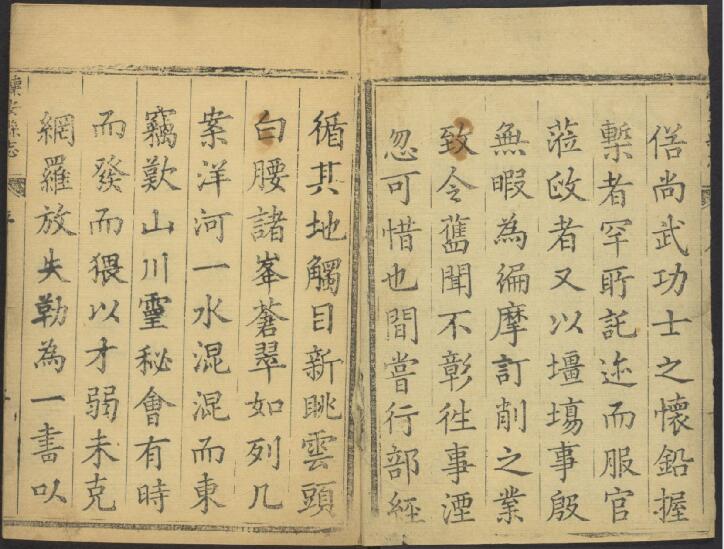 俗尚武功士之懷鉛握
槧者罕所託迹而服官
蒞政者又以壃場事殷
無暇為編摩訂削之業
致令舊聞不彰徃事湮
忽可惜也間嘗行部經
循其地觸目新眺雲頭
白腰諸峯蒼翠如列几
案洋河一水混混而東
竊歎山川靈秘會有時
而發而猥以才弱未克
網羅放失勒為一書以
懷安縣志